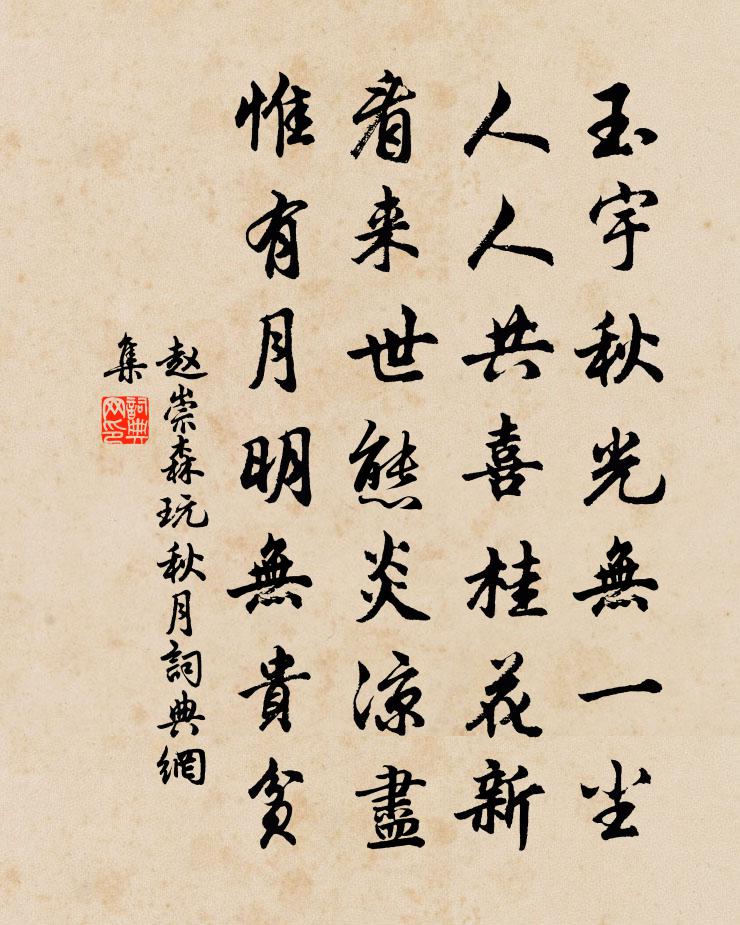 玉宇秋光無一尘
人人共喜桂花新
看来世態炎涼盡
惟有月明無貴貧
赵崇森玩秋月詞典網
集
詞典
网印